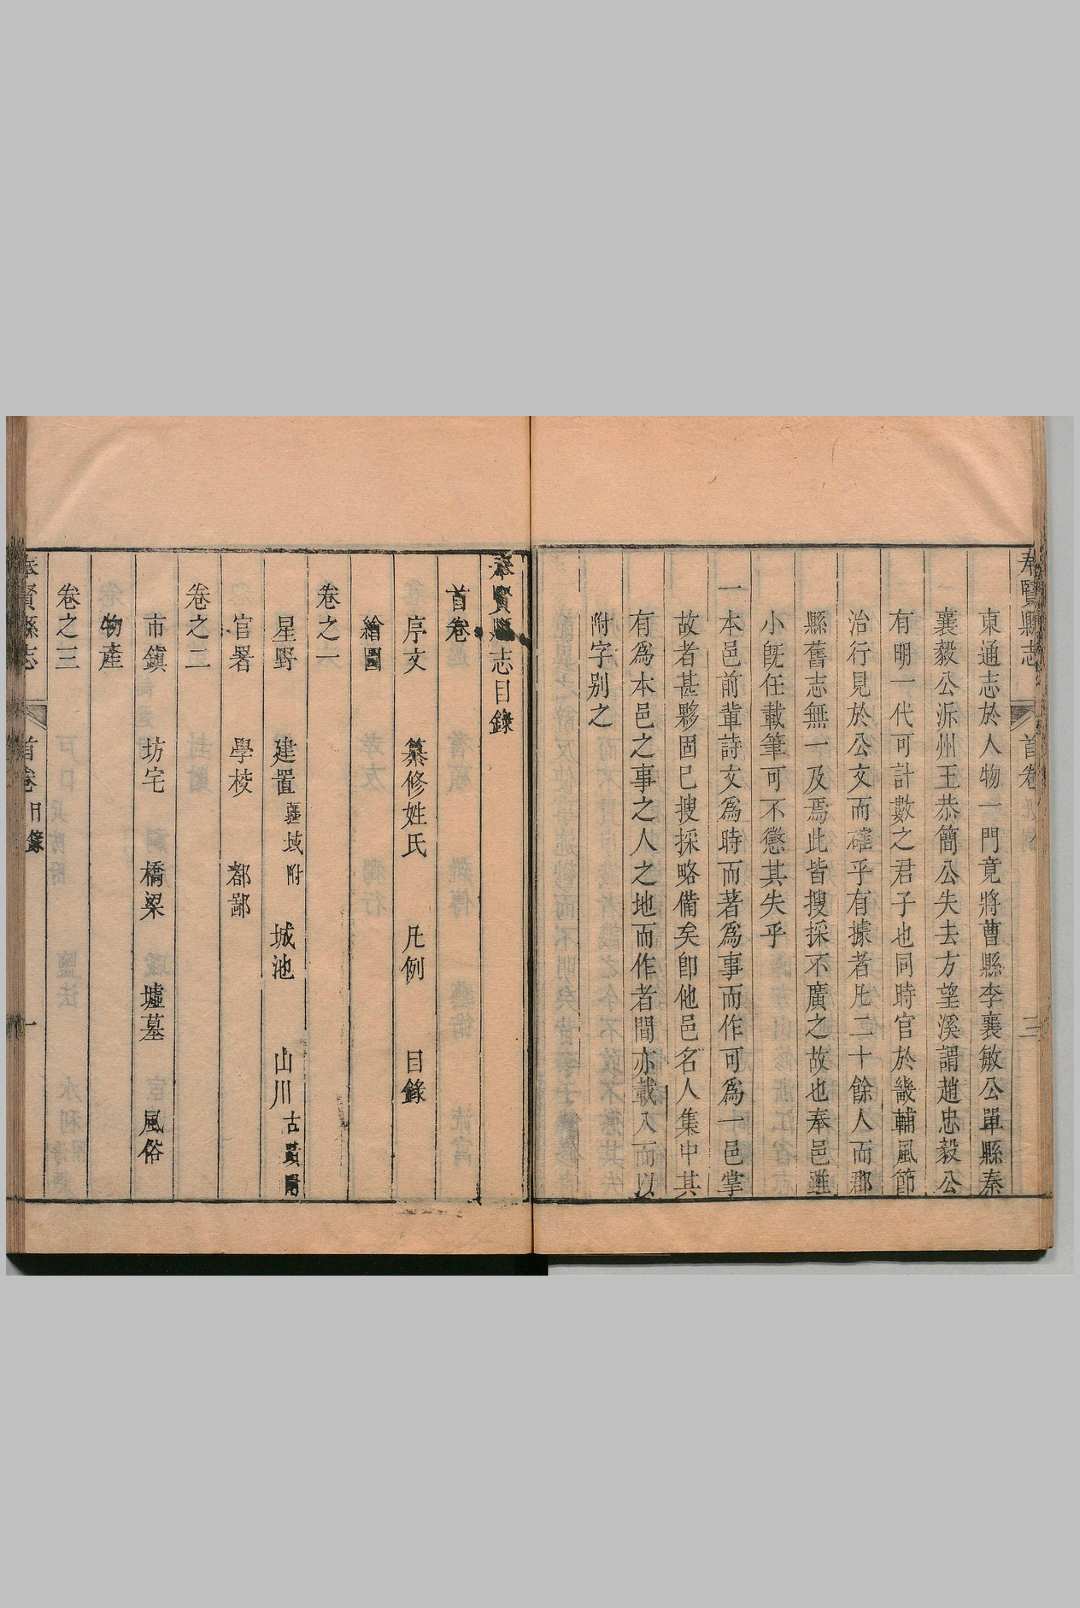 奉賢縣志 首卷 三
東通志於人物一門竟將曹縣李襄敏公單縣秦
襄毅公泝州王恭簡公失去方望溪謂趙忠毅公
有明一代可計數之君子也同時官於畿輔風節
治行見於公文而確乎有據者凡二十餘人而郡
縣舊志無一及焉此皆搜採不廣之故也奉邑雖
小旣任載筆可不懲其失乎
一本邑前軰詩文爲時而著爲事而作可爲一邑掌
故者甚夥固已搜採略備矣卽他邑名人集中其
有爲本邑之事之人之地而作者間亦載入而以
附字别之
奉賢縣志目錄
首卷
序文 纂修姓氏 凡例 目錄
繪圖
卷之一
星野 建置疆域附 城池 山川古蹟附
官署 學校 都鄙
卷之二
市鎮 坊宅 橋梁 墟墓 風俗
物產
卷之三
奉賢縣志 首卷 目錄 一